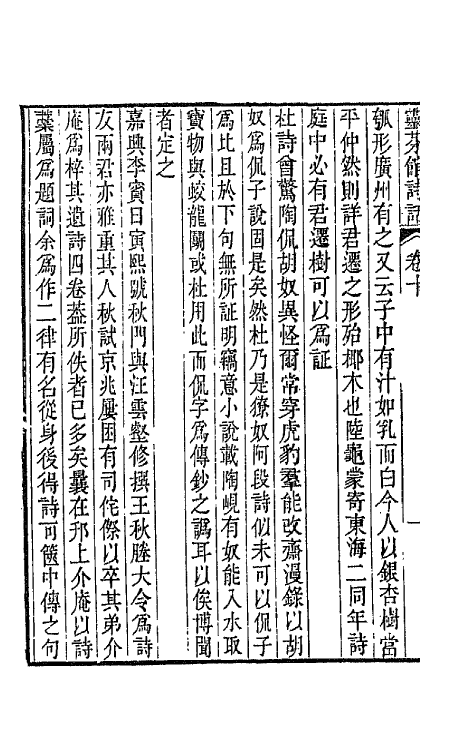 靈芬館詩話　卷十　一
瓠形廣州有之又云子中有汁如乳而白今人以銀杏樹當
平仲然則詳君遷之形殆椰木也陸龜蒙寄東海二同年詩
庭中必有君遷樹可以爲証
杜詩曾驚陶侃胡奴異怪爾常穿虎豹羣能改齋漫錄以胡
奴爲侃子說固是矣然杜乃是獠奴阿段詩似未可以侃子
爲比且於下句無所証明竊意小說載陶峴有奴能入水取
寶物與蛟龍鬭或杜用此而侃字爲傳鈔之譌耳以俟博聞
者定之
嘉興李賓日寅熙號秋門與汪雲壑修撰王秋塍大令爲詩
友兩君亦雅重其人秋試京兆屢困有司侘傺以卒其弟介
庵爲梓其遺詩四卷葢所佚者已多矣曩在邗上介庵以詩
藁屬爲題詞余爲作二律有名從身後得詩可篋中傳之句